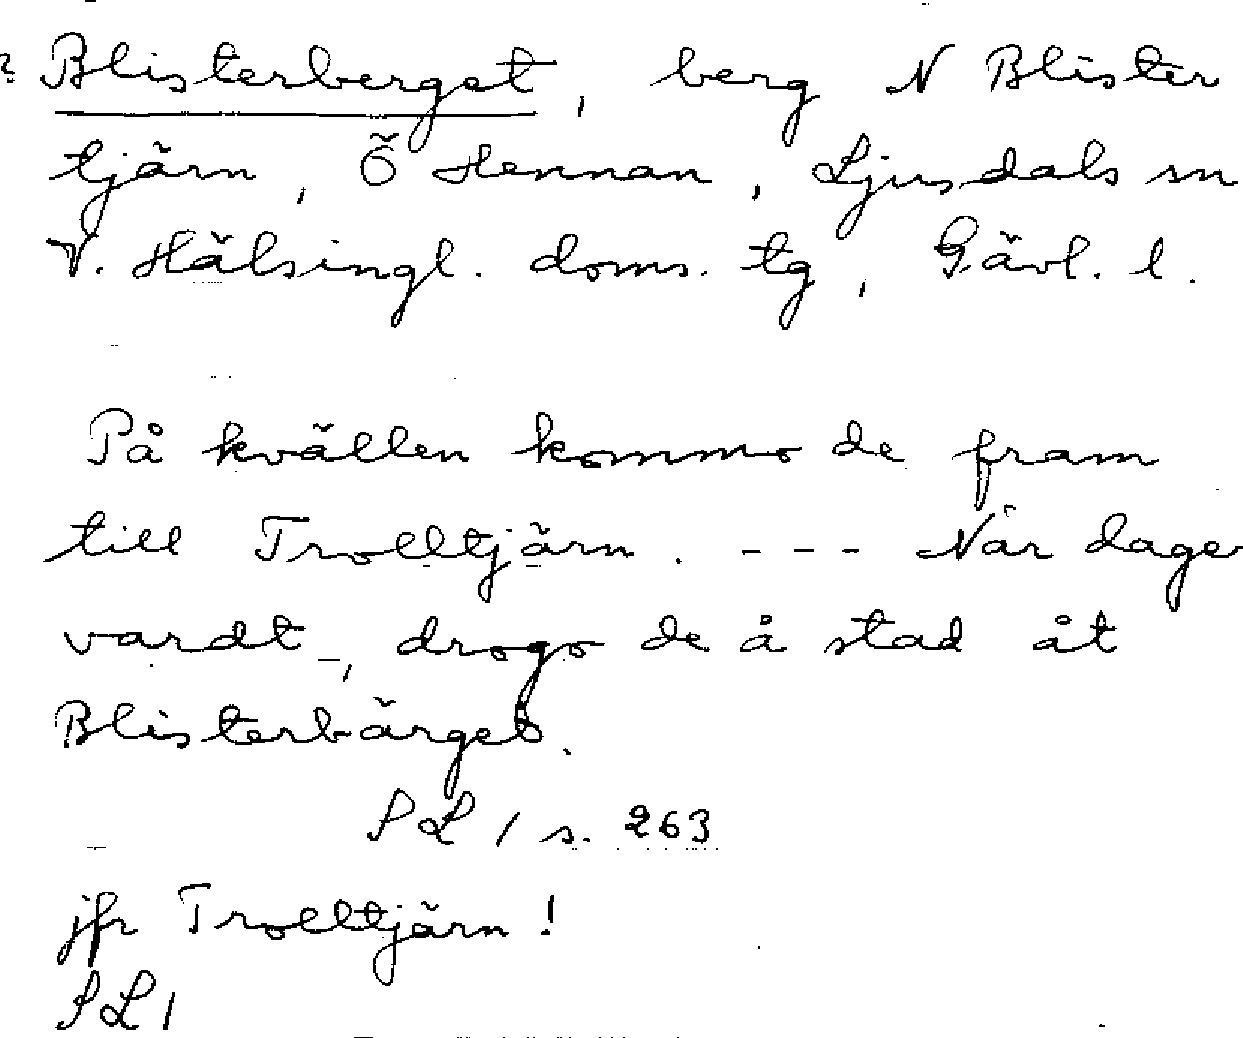 ? Blisterberget, berg N Blister
tjärn, Ö Hennan, Ljusdals sn
V. Hälsingl. doms. tg, Gävl. l.
På kvällen kommo de fram
till Trolltjärn. - - - När dage
vardt, drogo de å stad åt
Blisterbärget.
SL 1 s. 263
jfr Trolltjärn!
SL 1